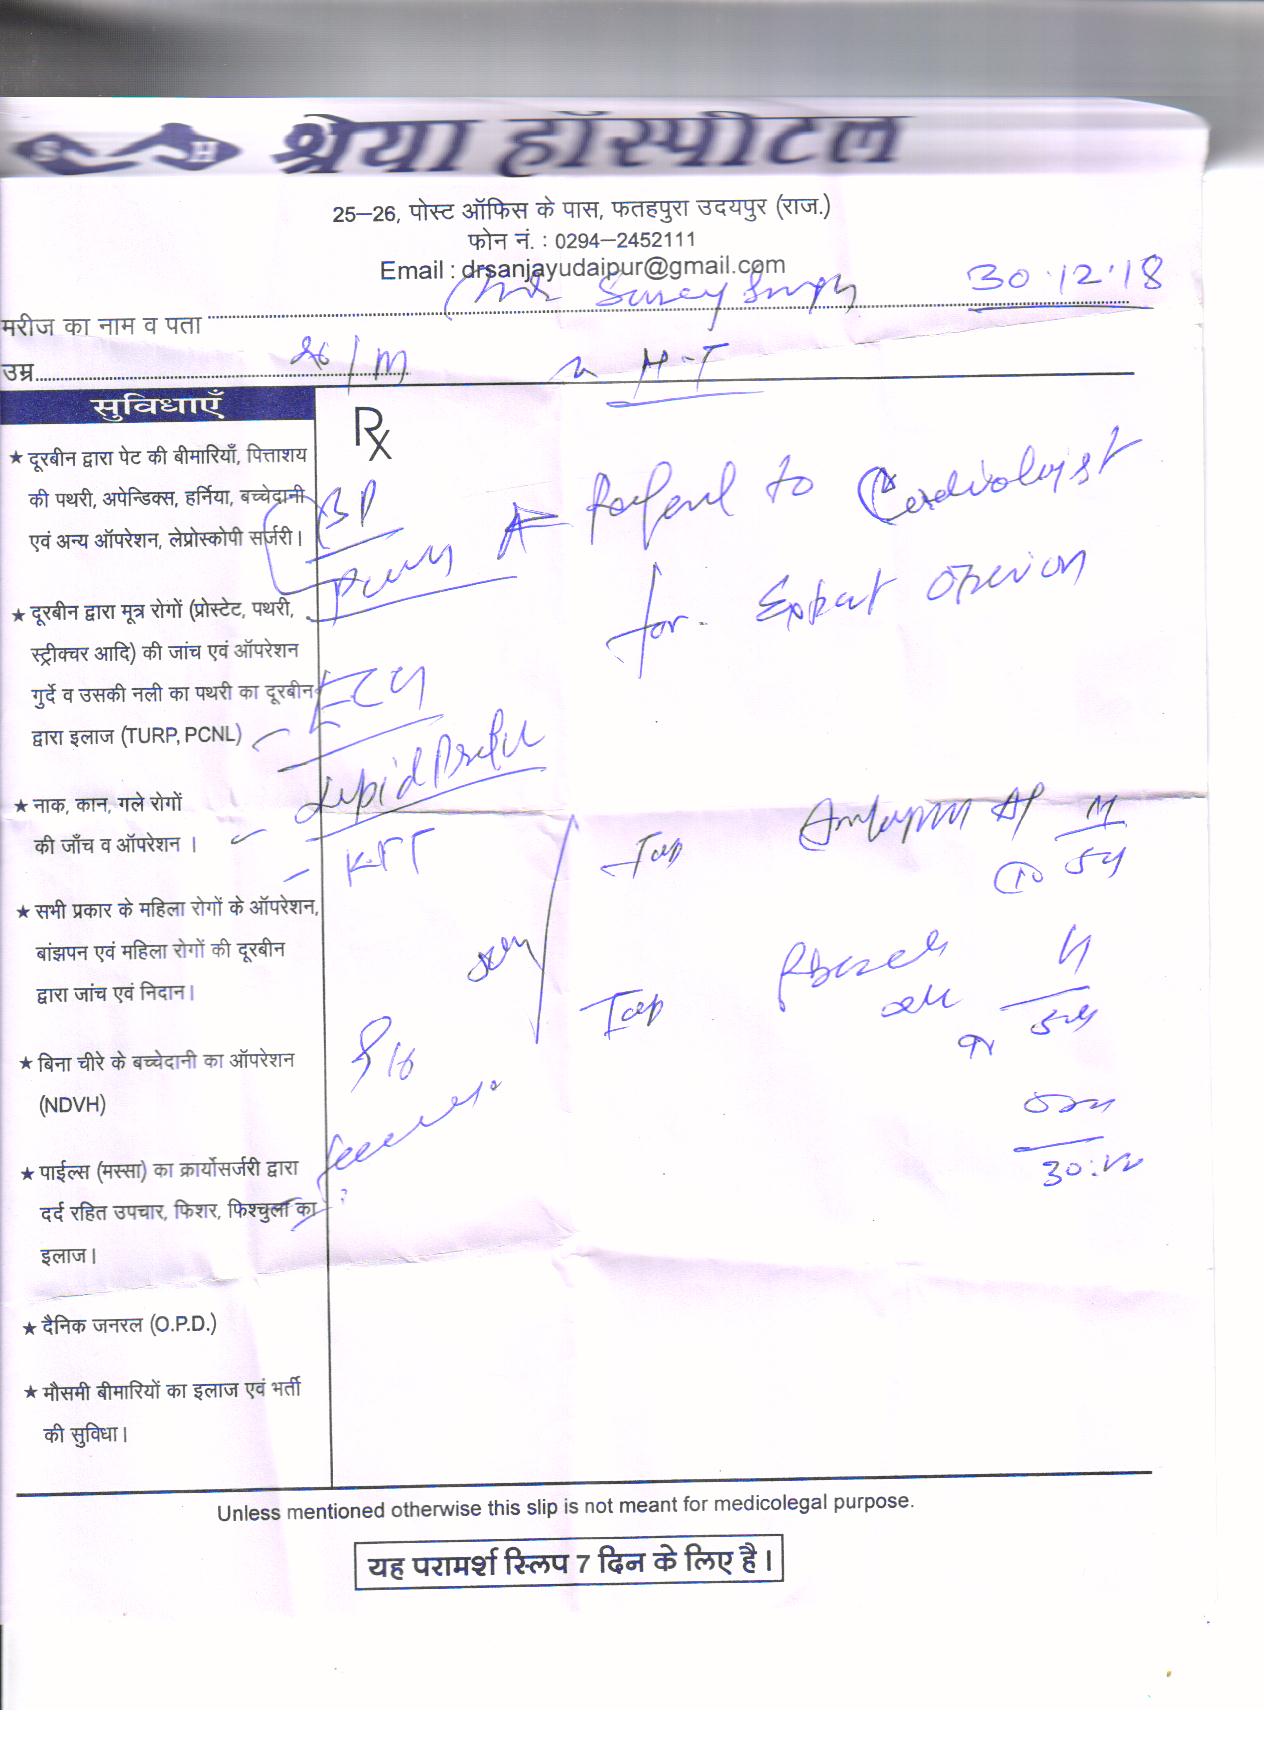 S H श्रेया हॉस्पीटल
25–26, पोस्ट ऑफिस के पास, फतहपुरा उदयपुर (राज.)
फोन नं. : 0294–2452111
Email : drsanjayudaipur@gmail.com
30.12.18
मरीज का नाम व पता
उम्र
/M
H-T
सुविधाएँ
Rx
★ दूरबीन द्वारा पेट की बीमारियाँ, पित्ताशय
की पथरी, अपेन्डिक्स, हर्निया, बच्चेदानी
एवं अन्य ऑपरेशन, लेप्रोस्कोपी सर्जरी।
★ दूरबीन द्वारा मूत्र रोगों (प्रोस्टेट, पथरी,
स्ट्रीक्चर आदि) की जांच एवं ऑपरेशन
गुर्दे व उसकी नली का पथरी का दूरबीन
द्वारा इलाज (TURP, PCNL)
★ नाक, कान, गले रोगों
की जाँच व ऑपरेशन ।
★ सभी प्रकार के महिला रोगों के ऑपरेशन,
बांझपन एवं महिला रोगों की दूरबीन
द्वारा जांच एवं निदान।
★ बिना चीरे के बच्चेदानी का ऑपरेशन
(NDVH)
★ पाईल्स (मस्सा) का क्रार्योसर्जरी द्वारा
दर्द रहित उपचार, फिशर, फिश्चुला का
इलाज।
★ दैनिक जनरल (O.P.D.)
★ मौसमी बीमारियों का इलाज एवं भर्ती
की सुविधा।
BP
Referral to Cardiologist
for Expert Opinion
ECG
Lipid Profile
KFT
Tab
Tab
30.12
Unless mentioned otherwise this slip is not meant for medicolegal purpose.
यह परामर्श स्लिप 7 दिन के लिए है।